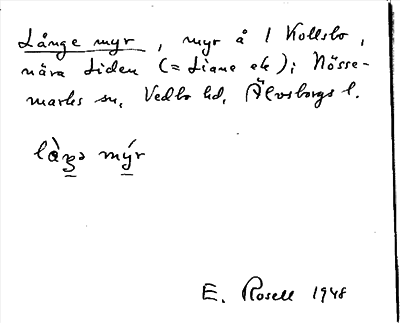 Långe myr, myr å 1 Kollsbo,
nära Liden (= Liane ek); Nösse-
marks sn, Vedbo hd, Älvsborgs l.
làŋə mýr
E. Rosell 1948